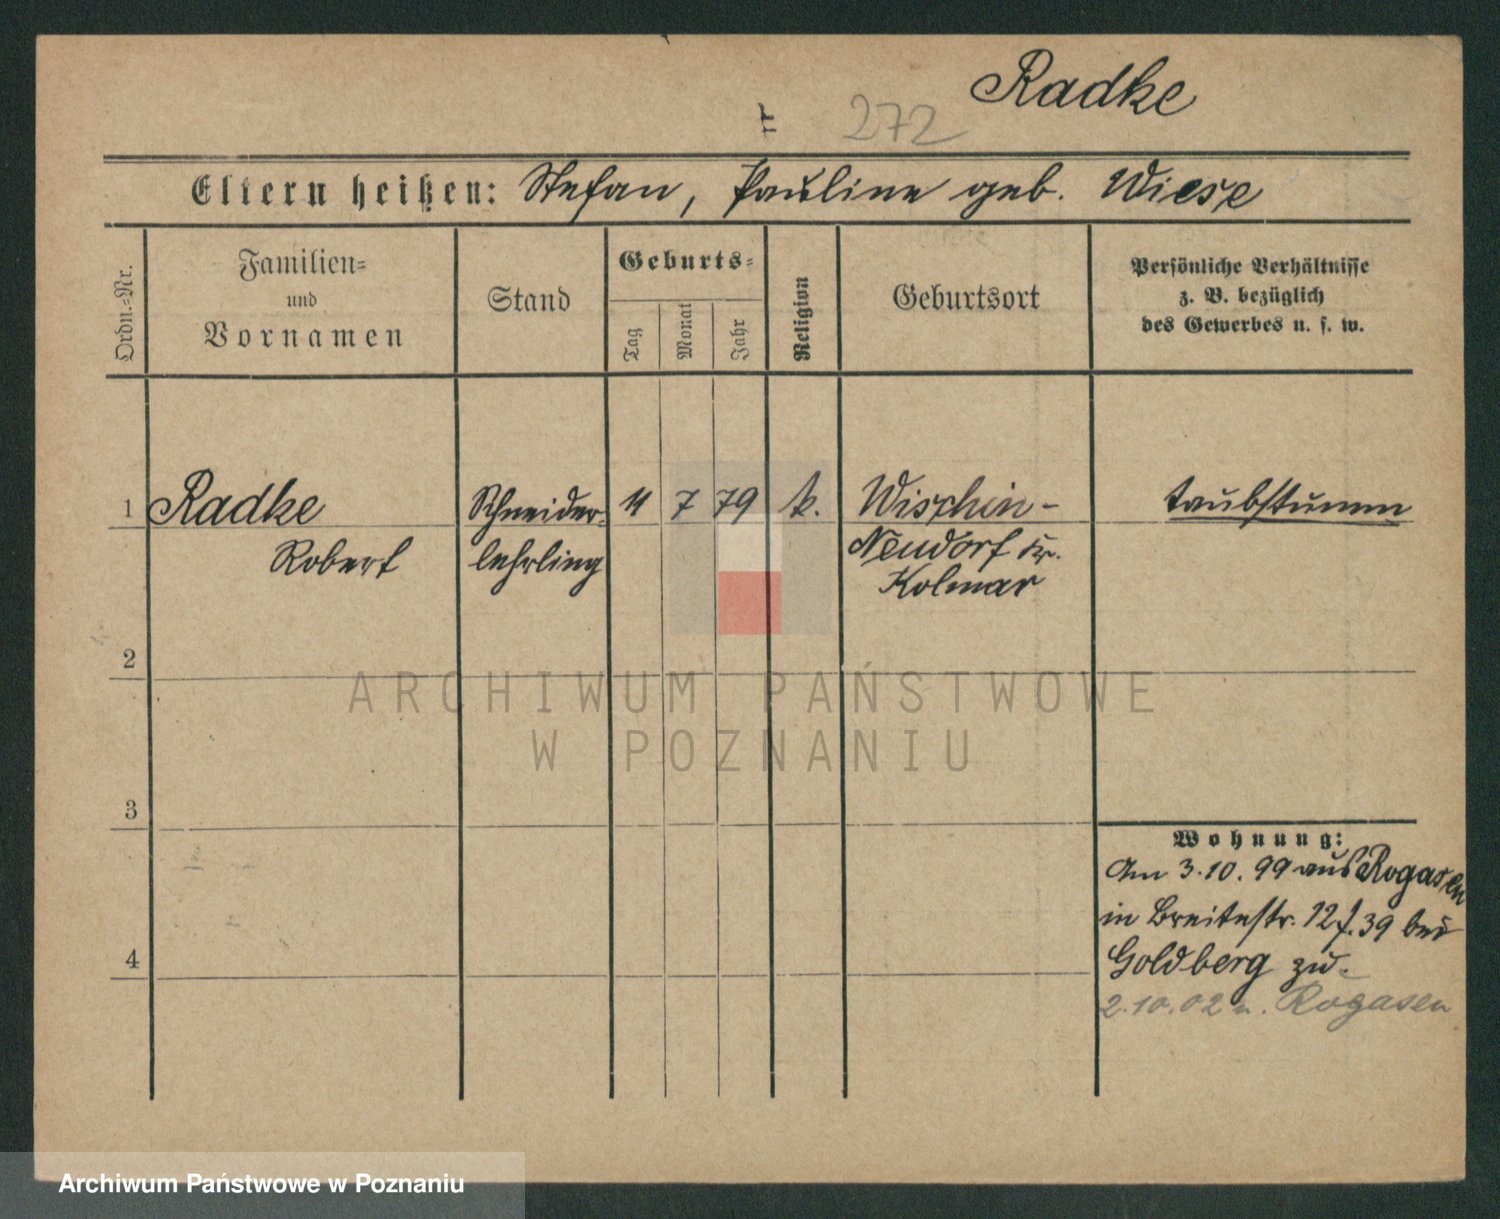 Radke
272
Eltern heißen: Stefan, Pauline geb. Wiese
Ordn.=Nr.
Familien=
und
Vornamen
Stand
Geburts=
Tag
Monat
Jahr
Religion
Geburtsort
Persönliche Verhältnisse
z. B. bezüglich
des Gewerbes u. s. w.
1 Radke Schneider- 11 7 79 k. Wischin- taubstumm
Robert lehrling Neudorf Kr.
Kolmar
2
3
4
Wohnung:
Am 3.10.99 aus Rogasen
in Breitestr. 12 f. 39 bei
Goldberg zu.
2.10.02 n. Rogasen
ARCHIWUM PAŃSTWOWE
W POZNANIU
Archiwum Państwowe w Poznaniu